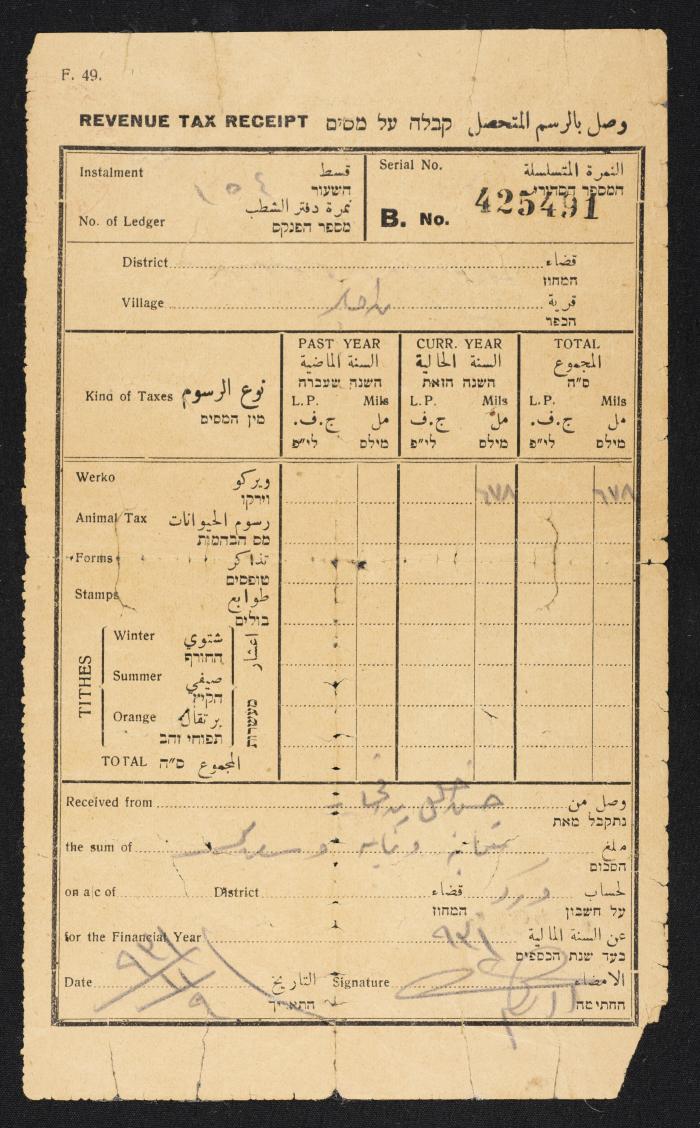 F. 49.
REVENUE TAX RECEIPT קבלה על מסים وصل بالرسم المتحصل
Instalment قسط
השעור
No. of Ledger نمرة دفتر الشطب
מספר הפנקס
١٥٤
Serial No. النمرة المتسلسلة
המספר הסדורי
B. No. 425491
District قضاء
המחוז
Village قرية
הכפר
Kind of Taxes نوع الرسوم
מין המסים
PAST YEAR
السنة الماضية
השנה שעברה
L.P. Mils
ج.ف. مل
לי"פ מילס
CURR. YEAR
السنة الحالية
השנה הזאת
L.P. Mils
ج.ف. مل
לי"פ מילס
TOTAL
المجموع
ס"ה
L.P. Mils
ج.ف. مل
לי"פ מילס
Werko ويركو
וירקו
٦٧٨ ٦٧٨
Animal Tax رسوم الحيوانات
מס הבהמות
Forms تذاكر
טופסים
Stamps طوابع
בולים
TITHES اعشار מעשרות
Winter شتوي
החורף
Summer صيفي
הקיץ
Orange برتقال
תפוחי זהב
TOTAL ס"ה المجموع
Received from وصل من
נתקבל מאת
the sum of مبلغ
הסכום
on a/c of District قضاء لحساب
המחוז על חשבון
ويركو
for the Financial Year عن السنة المالية
בעד שנת הכספים
٩٣١
Date التاريخ Signature الامضاء
התאריך החתימה